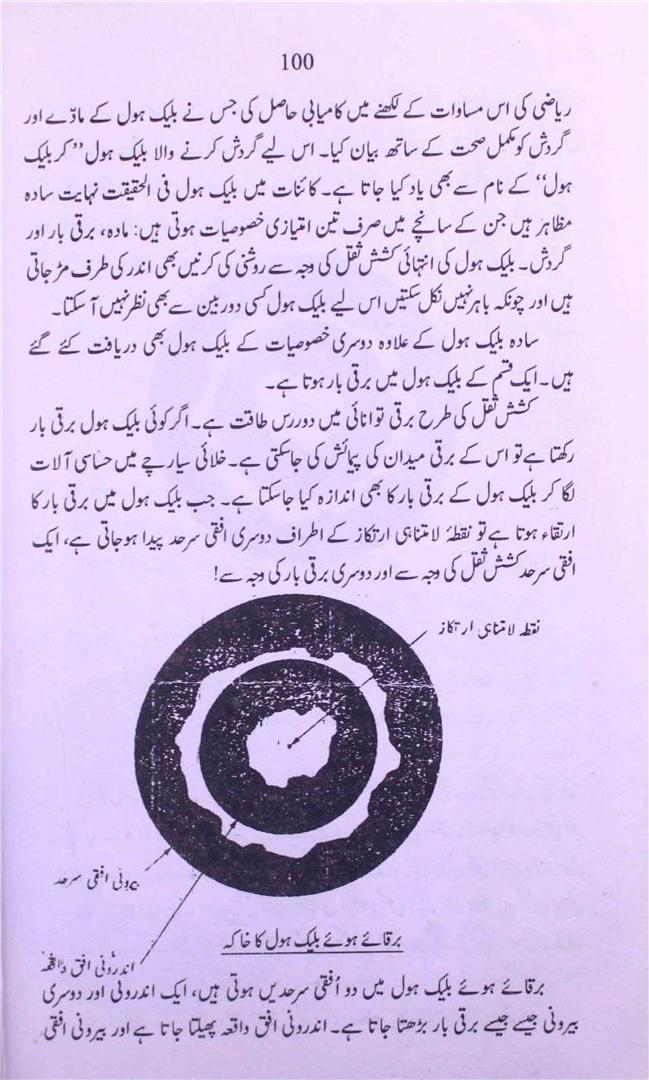 100
ریاضی کی اس مساوات کے لکھنے میں کامیابی حاصل کی جس نے بلیک ہول کے مادّے اور
گردش کو مکمل صحت کے ساتھ بیان کیا۔ اس لیے گردش کرنے والا بلیک ہول ”کر بلیک
ہول“ کے نام سے بھی یاد کیا جاتا ہے۔ کائنات میں بلیک ہول فی الحقیقت نہایت سادہ
مظاہر ہیں جن کے سانچے میں صرف تین امتیازی خصوصیات ہوتی ہیں: مادہ، برقی بار اور
گردش۔ بلیک ہول کی انتہائی کشش ثقل کی وجہ سے روشنی کی کرنیں بھی اندر کی طرف مڑ جاتی
ہیں اور چونکہ باہر نہیں نکل سکتیں اس لیے بلیک ہول کسی دوربین سے بھی نظر نہیں آ سکتا۔
سادہ بلیک ہول کے علاوہ دوسری خصوصیات کے بلیک ہول بھی دریافت کئے گئے
ہیں۔ ایک قسم کے بلیک ہول میں برقی بار ہوتا ہے۔
کشش ثقل کی طرح برقی توانائی میں دوررس طاقت ہے۔ اگر کوئی بلیک ہول برقی بار
رکھتا ہے تو اس کے برقی میدان کی پیمائش کی جاسکتی ہے۔ خلائی سیارچے میں حساسی آلات
لگا کر بلیک ہول کے برقی بار کا بھی اندازہ کیا جاسکتا ہے۔ جب بلیک ہول میں برقی بار کا
ارتقاء ہوتا ہے تو نقطۂ لامتناہی ارتکاز کے اطراف دوسری افقی سرحد پیدا ہوجاتی ہے، ایک
افقی سرحد کشش ثقل کی وجہ سے اور دوسری برقی بار کی وجہ سے!
نقطہ لامتناہی ارتکاز
بیرونی افقی سرحد
اندرونی افق واقعہ
برقائے ہوئے بلیک ہول کا خاکہ
برقائے ہوئے بلیک ہول میں دو اُفقی سرحدیں ہوتی ہیں، ایک اندرونی اور دوسری
بیرونی جیسے جیسے برقی بار بڑھتا جاتا ہے۔ اندرونی افق واقعہ پھیلتا جاتا ہے اور بیرونی افقی